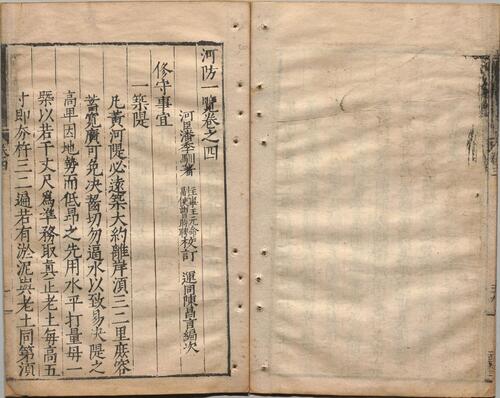 河防一覽卷之四
河臣潘季馴著 校訂 運同陳昌言編次
修守事宜
一築隄
凡黃河隄必遠築大約離岸湏三二里庻容
蓄寛廣可免决嚙切勿逼水以致易决隄之
高卑因地勢而低昻之先用水平打量毋一
槩以若干丈尺爲準務取真正老土每高五
寸即夯杵三二遍若有淤泥與老土同第湏
卷四